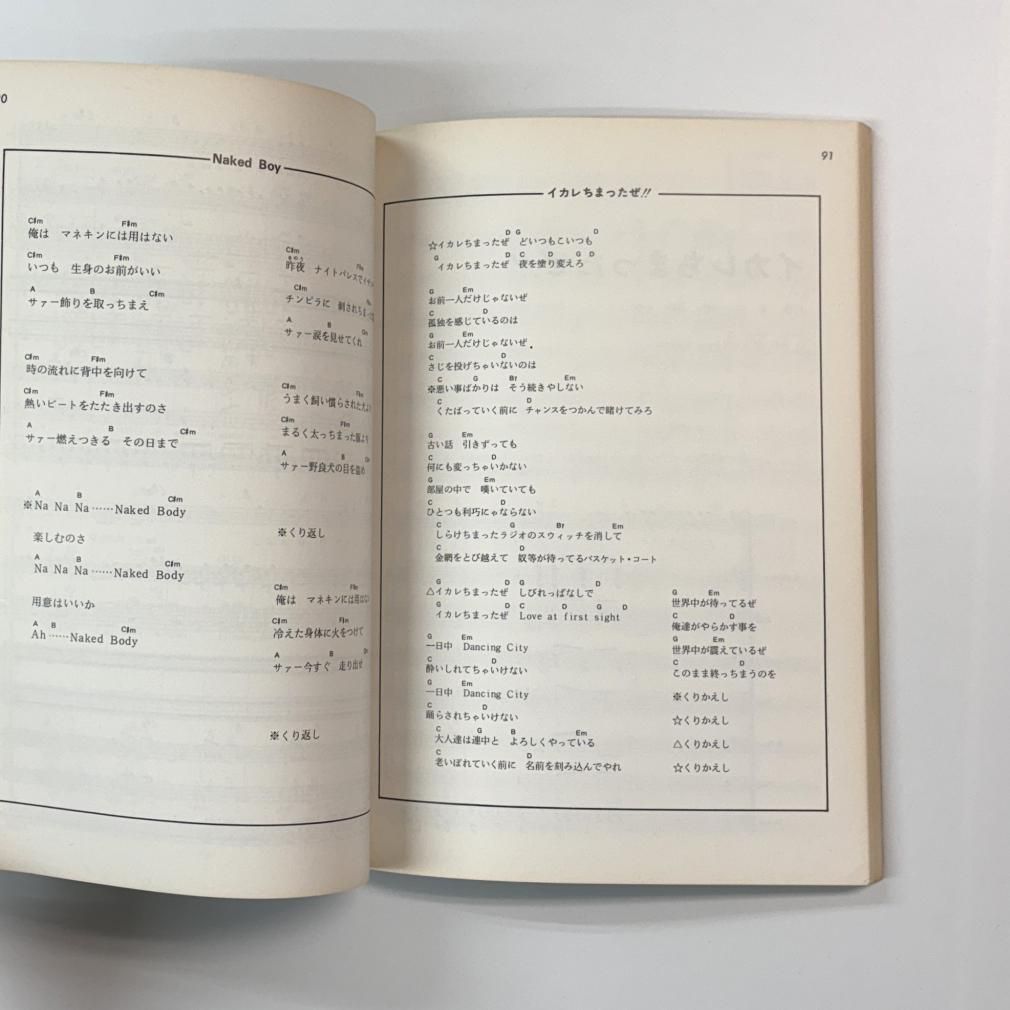 Naked Boy
C♯m F♯m
俺は マネキンには用はない
C♯m F♯m
いつも 生身のお前がいい
A B C♯m
サァー飾りを取っちまえ
C♯m F♯m
時の流れに背中を向けて
C♯m F♯m
熱いビートをたたき出すのさ
A B C♯m
サァー燃えつきる その日まで
A B C♯m
※Na Na Na ……Naked Body
楽しむのさ
A B C♯m
Na Na Na ……Naked Body
用意はいいか
A B C♯m
Ah ……Naked Body
C♯m F♯m
昨夜 ナイトパレスで
C♯m
チンピラに 刺され
A B
サァー涙を見せてくれ
C♯m F♯m
うまく飼い慣らされた犬より
C♯m F♯m
まるく太っちまった豚より
A B
サァー野良犬の目を
※くり返し
C♯m F♯m
俺は マネキンには用はない
C♯m F♯m
冷えた身体に火をつけて
A B
サァー今すぐ 走り出せ
※くり返し
91
イカレちまったぜ!!
D G D
☆イカレちまったぜ どいつもこいつも
G D C D G D
イカレちまったぜ 夜を塗り変えろ
G Em
お前一人だけじゃないぜ
C D
孤独を感じているのは
G Em
お前一人だけじゃないぜ
C D
さじを投げちゃいないのは
C G B7 Em
※悪い事ばかりは そう続きやしない
C D
くたばっていく前に チャンスをつかんで賭けてみろ
G Em
古い話 引きずっても
C D
何にも変っちゃいかない
G Em
部屋の中で 嘆いていても
C D
ひとつも利巧にゃならない
C G B7 Em
しらけちまったラジオのスウィッチを消して
C D
金網をとび越えて 奴等が待ってるバスケット・コート
G D G D
△イカレちまったぜ しびれっぱなしで
G D C D G D
イカレちまったぜ Love at first sight
G Em
一日中 Dancing City
C D
酔いしれてちゃいけない
G Em
一日中 Dancing City
C D
踊らされちゃいけない
C G B Em
大人達は連中と よろしくやっている
C D
老いぼれていく前に 名前を刻み込んでやれ
G Em
世界中が待ってるぜ
C D
俺達がやらかす事を
G Em
世界中が震えているぜ
C D
このまま終っちまうのを
※くりかえし
☆くりかえし
△くりかえし
☆くりかえし